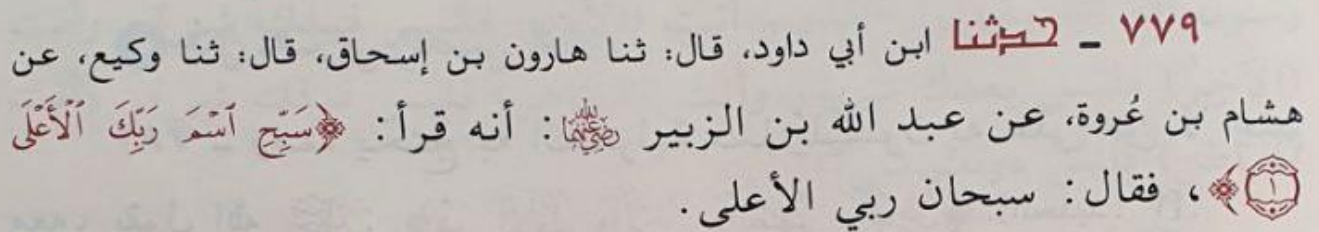 ٧٧٩ ـ حدثنا ابن أبي داود، قال: ثنا هارون بن إسحاق، قال: ثنا وكيع، عن
هشام بن عُروة، عن عبد الله بن الزبير رضي الله عنهما: أنه قرأ: ﴿سَبِّحِ ٱسْمَ رَبِّكَ ٱلْأَعْلَى
١﴾، فقال: سبحان ربي الأعلى.